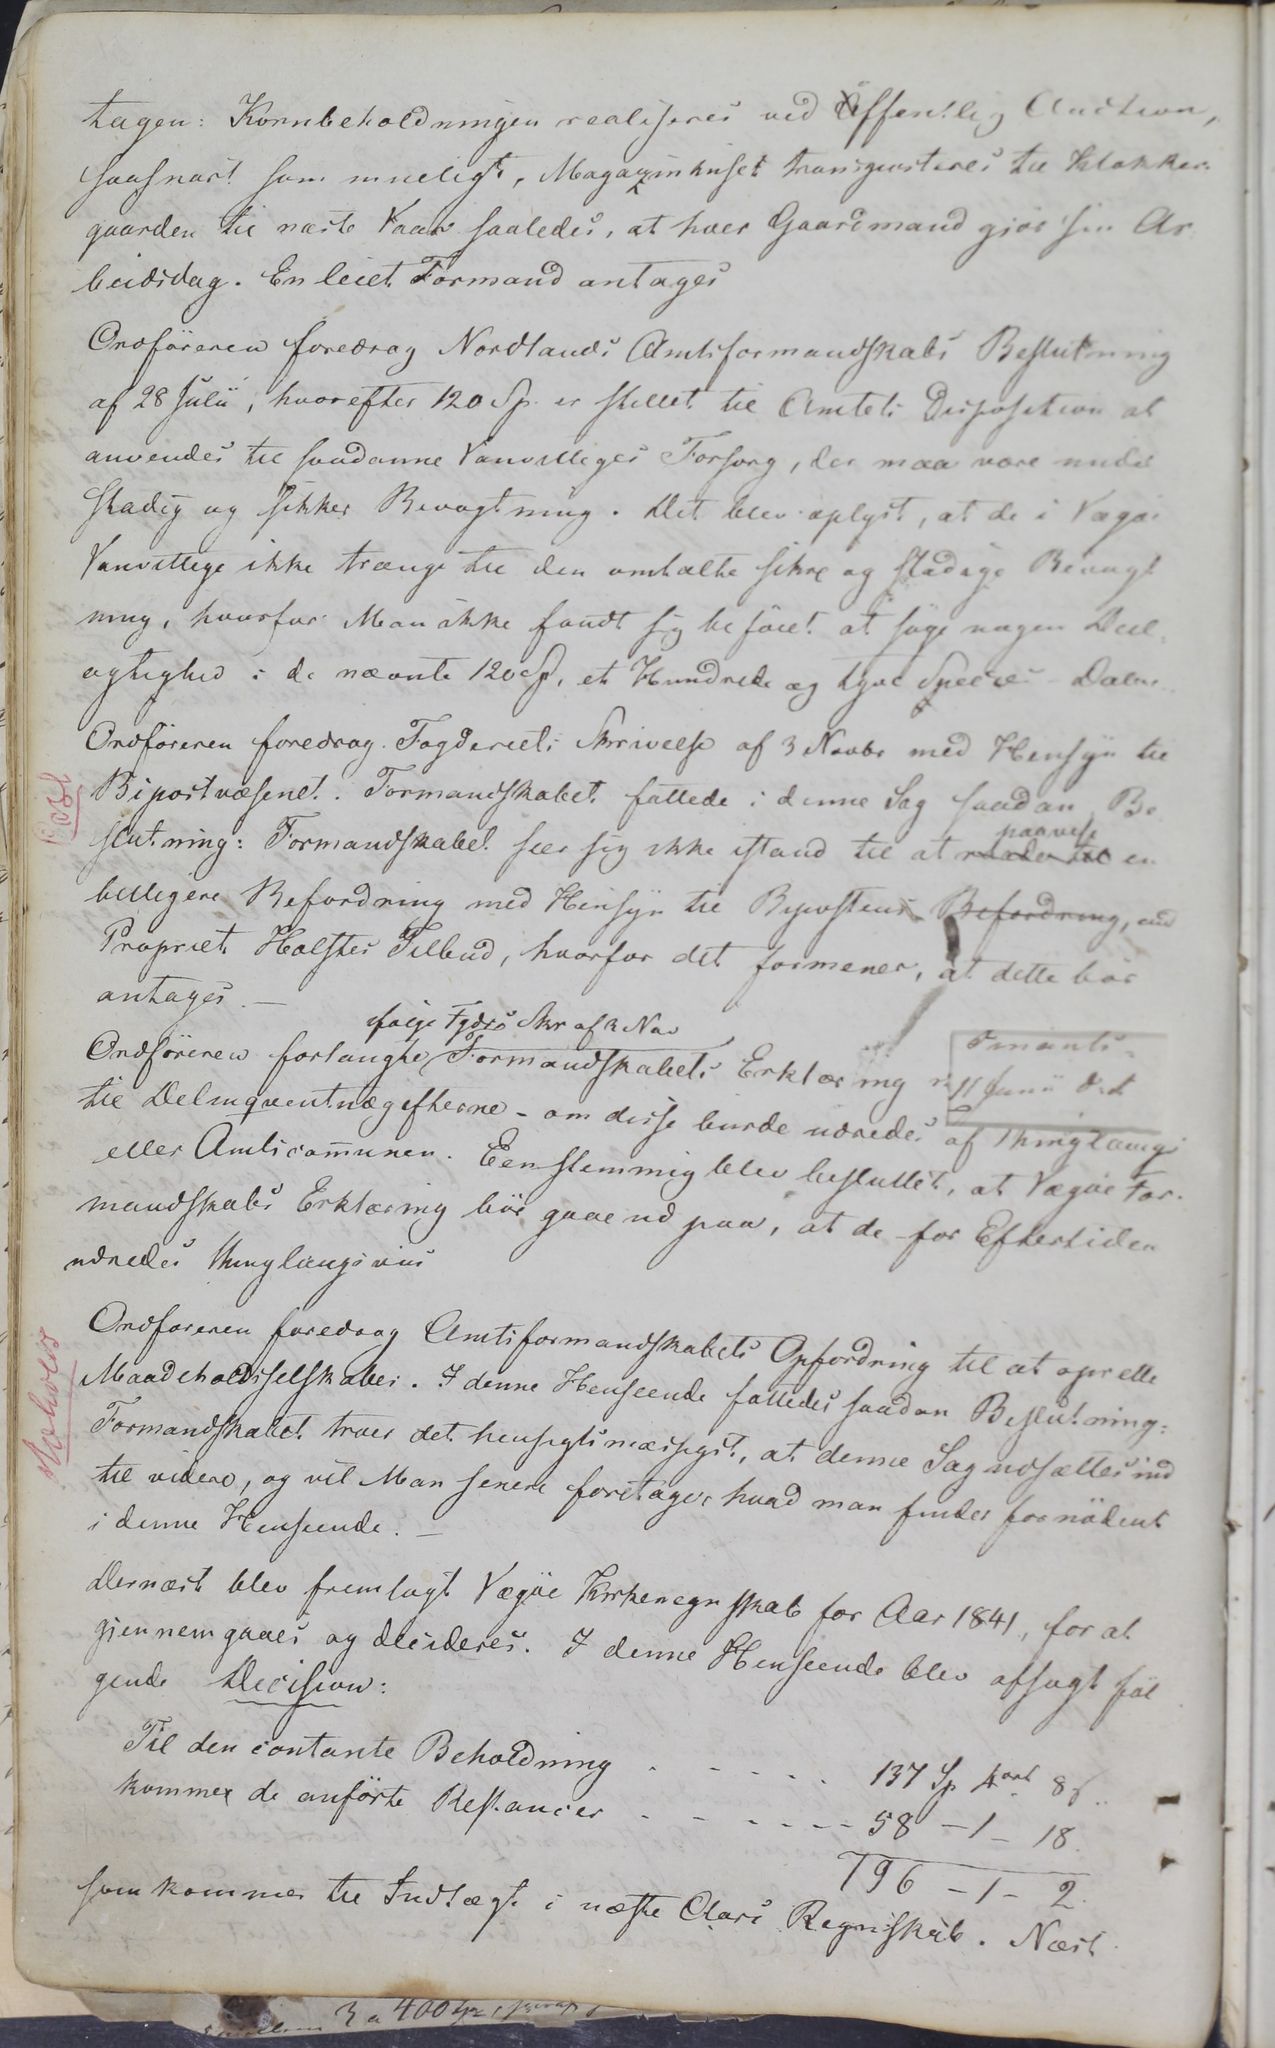 tagen: Kornbeholdningen realiseres ved Offentlig Auction,
saasnart som mueligt, Magazinhuset transporteres til Klokker
gaarden til næste Vaar saaledes, at hver Gaardmand giör sin Ar
beidsdag. En leiet Formand antages
Ordföreren foredrog Nordlands Amtsformandskabs Beslutning
af 28 Julii, hvorefter 120 Sp. er stillet til Amtets Disposition at
anvendes til saadanne Vanvittiges Forsorg, der maa være under
stadig og sikker Bevogtning. Det blev oplyst, at de i Vægöe
Vanvittige ikke trænge til den omtalte sikre og stadige Bevogt
ning, hvorfor Man ikke fandt sig beföiet at söge nogen Deel
agtighed i de nævnte 120 Sp, et Hundrede og tyve Species-Daler.
Ordföreren foredrog Fogderiets Skrivelse af 3 Novbr med Hensyn til
Bipostvæsenet. Formandskabet fattede i denne Sag saadan Be
Post
slutning: Formandskabet seer sig ikke istand til at paavise en
billigere Befordring med Hensyn til Bipostens Befordring, end
Propriet. Holsts Tilbud, hvorfor det formener, at dette bör
antages. —
ifölge Fgdrs Skr af 3 Nov
Ordföreren forlangte Formandskabets Erklæring
11 Junii
til Delinqventudgifterne - om disse burde udredes af Thinglaug
eller Amtscommunen. Eenstemmig blev besluttet, at Vægöe For
mandskabs Erklæring bör gaae ud paa, at de for Eftertiden
udredes thinglaugsviis
Ordföreren foredrog Amtsformandskabets Opfordring til at oprette
Maadeholdsselskaber. I denne Henseende fattedes saadan Beslutning:
Formandskabet troer det hensigtsmæssigst, at denne Sag udsættes ind
til videre, og vil Man senere foretage, hvad man finder fornödent
i denne Henseende. —
Dernæst blev fremlagt Vægöe Kirkeregnskab for Aar 1841, for at
gjennemgaaes og decideres. I denne Henseende blev afsagt föl
gende Decision:
Til den contante Beholdning . - - - - - 137 Sp 4 ort 8 s
kommer de anförte Restancer - - - - - - 58 - 1 - 18
196 - 1 - 2
som kommer til Indtægt i næste Aars Regnskab. Næst